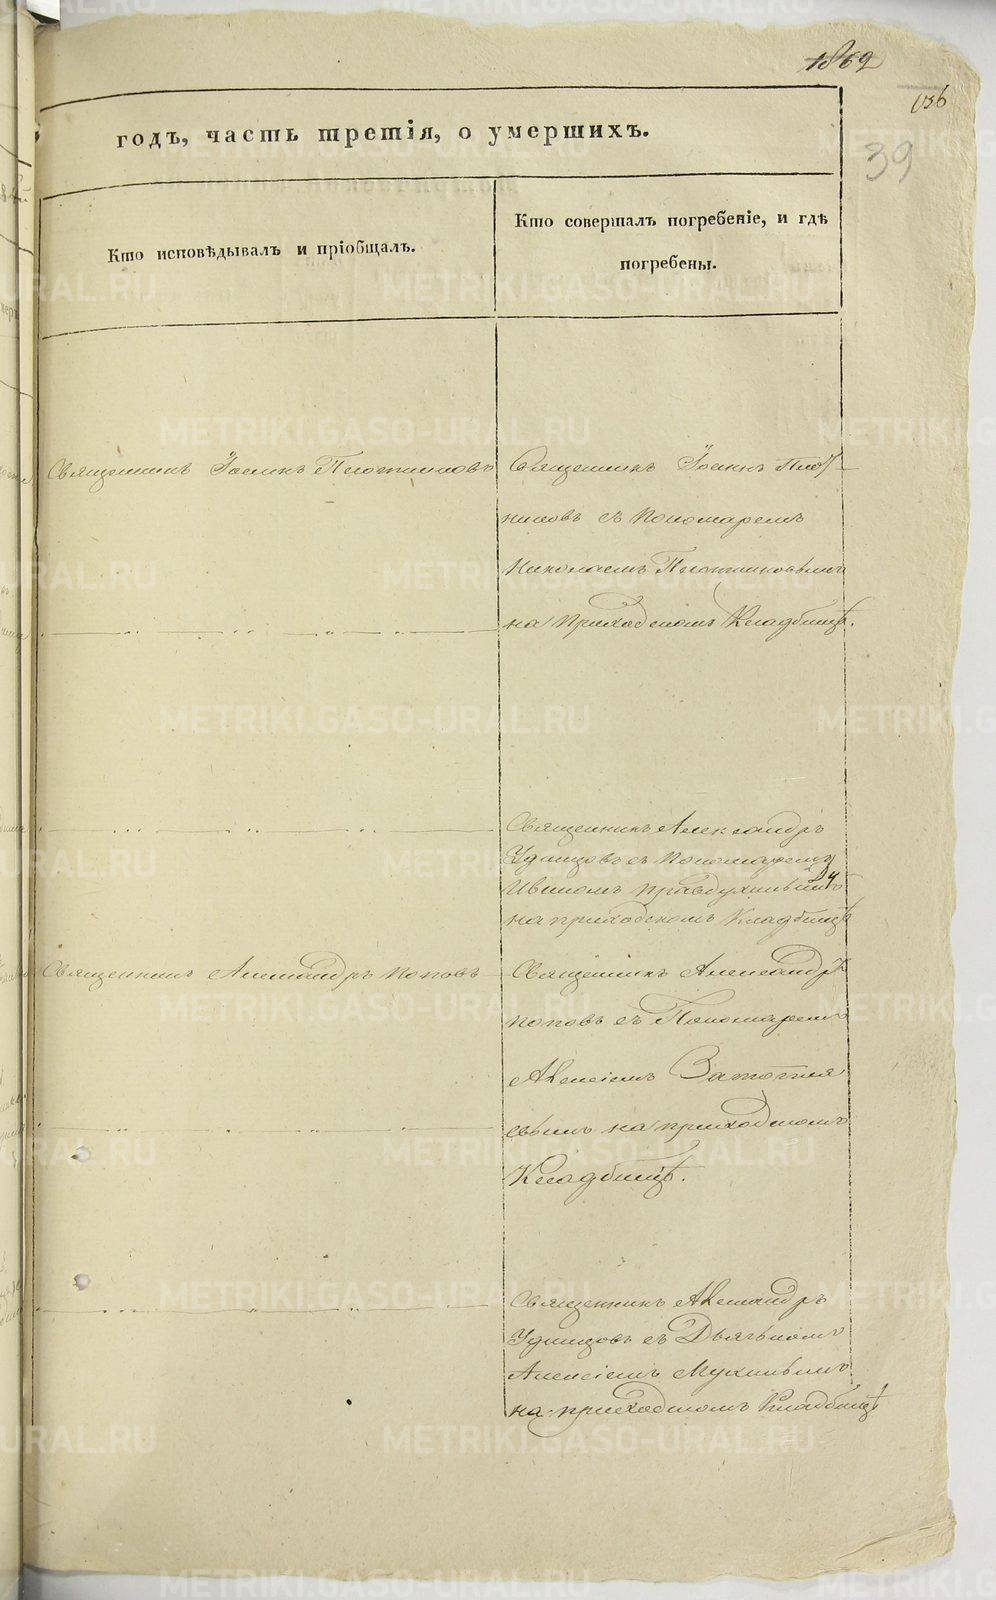 1862
156
39
годъ, часть третія, о умершихъ.
Кто исповѣдывалъ и пріобщалъ.
Кто совершалъ погребеніе, и гдѣ
погребены.
Священникъ Іоаннъ Плотниковъ
Священникъ Іоаннъ Плот-
никовъ съ Пономаремъ
Николаемъ Плотниковымъ
на Приходскомъ Кладбищѣ.
Священникъ Александръ
Удинцовъ съ Пономаремъ
на приходскомъ Кладбищѣ
Священникъ Александръ Поповъ
Священникъ Александръ
Поповъ съ Пономаремъ
Алексіемъ
евымъ на приходскомъ
Кладбищѣ.
Священникъ Александръ
Удинцовъ съ Дьячкомъ
Алексіемъ
на приходскомъ Кладбищѣ
METRIKI.GASO-URAL.RU